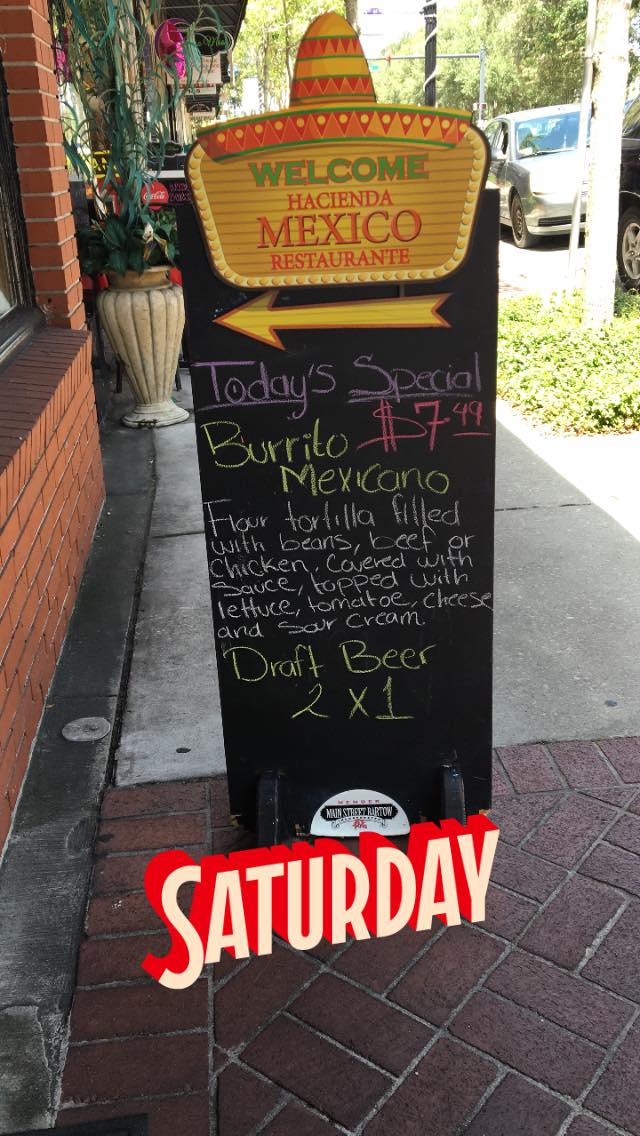 WELCOME
HACIENDA
MEXICO
RESTAURANTE
Coca-Cola
Today's Special
$7.49
Burrito
Mexicano
Flour tortilla filled
with beans, beef or
chicken. Covered with
Sauce, topped with
lettuce, tomatoe, cheese
and Sour Cream.
Draft Beer
2 X 1
MEMBER
MAIN STREET BARTOW
SATURDAY